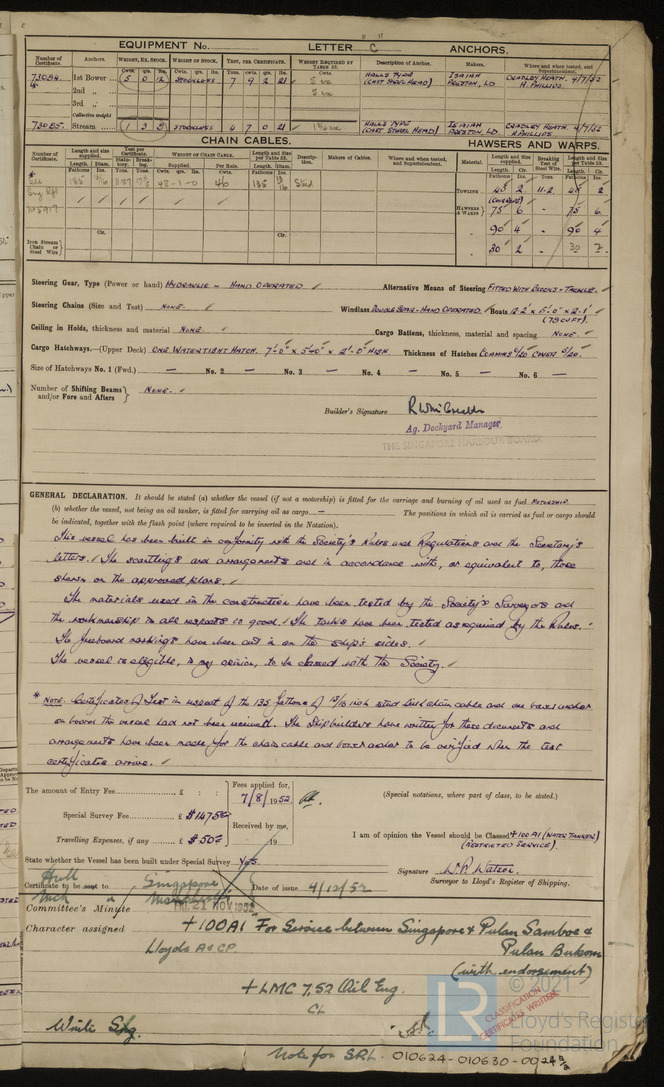 EQUIPMENT No. LETTER "C" ANCHORS.
Number of Certificate. Anchors. WEIGHT, EX. STOCK. WEIGHT OF STOCK. TEST, PER CERTIFICATE. WEIGHT REQUIRED BY TABLE 53. Description of Anchor. Makers. Where and when tested, and Superintendent.
73084 1st Bower 5 0 12 STOCKLESS 7 9 2 21 5 cwt HALLS TYPE (CAST STEEL HEAD) ISAIAH PRESTON, LD. CRADLEY HEATH. 4/7/52 H. PHILLIPS
2nd „ 5 cwt
3rd „
Collective weight
73085. Stream 1 3 3 STOCKLESS 4 7 0 21 HALLS TYPE (CAST STEEL HEAD) ISAIAH PRESTON, LD. CRADLEY HEATH. 4/7/52 H. PHILLIPS
CHAIN CABLES. HAWSERS AND WARPS.
Number of Certificate. Length and size supplied. Test per Certificate. WEIGHT OF CHAIN CABLE. Length and Size per Table 53. Description. Makers of Cables. Where and when tested, and Superintendent. Material. Length and Size supplied. Breaking Test of Steel Wire. Length and Size per Table 53.
Fathoms Supplied. Per Rule. Length. Diam.
135 48-1-0 46 135 Stud
TOWLINE 45 2 11.2 45 2
HAWSERS & WARPS 75 6 - 75 6
90 4 - 90 4
30 2 - 30 2
Iron Stream Chain or Steel Wire
Steering Gear, Type (Power or hand) HYDRAULIC - HAND OPERATED Alternative Means of Steering FITTED WITH BLOCKS & TACKLE.
Steering Chains (Size and Test) NONE. Windlass DOUBLE GEAR - HAND OPERATED Boats 12'-2" x 5'-0" x 2'-1"
Ceiling in Holds, thickness and material NONE. Cargo Battens, thickness, material and spacing NONE.
Cargo Hatchways.—(Upper Deck) ONE WATERTIGHT HATCH. 7'-0" x 5'-0" x 2'-0" HIGH. Thickness of Hatches COAMING 6/20 COVER 6/20.
Size of Hatchways No. 1 (Fwd.) — No. 2 — No. 3 — No. 4 — No. 5 — No. 6 —
Number of Shifting Beams and/or Fore and Afters NONE.
Builder's Signature
Ag. Dockyard Manager,
THE SINGAPORE HARBOUR BOARD
GENERAL DECLARATION. It should be stated (a) whether the vessel (if not a motorship) is fitted for the carriage and burning of oil used as fuel MOTORSHIP
(b) whether the vessel, not being an oil tanker, is fitted for carrying oil as cargo — The positions in which oil is carried as fuel or cargo should
be indicated, together with the flash point (where required to be inserted in the Notation).
This vessel has been built in conformity with the Society's Rules and Regulations and the Secretary's
letters. The scantlings and arrangements are in accordance with, or equivalent to, those
shewn on the approved plans.
The materials used in the construction have been tested by the Society's Surveyors and
the workmanship in all respects is good. The tanks have been tested as required by the Rules.
The freeboard markings have been cut in on the ship's sides.
The vessel is eligible, in my opinion, to be classed with the Society.
* NOTE. Certificates of Test in respect of the 135 fathoms of 13/16 inch stud link chain cable and one bower anchor
on board the vessel had not been received. The Shipbuilders have written for these documents and
arrangements have been made for the chain cable and bower anchor to be verified when the test
certificates arrive.
The amount of Entry Fee £ : :
Special Survey Fee £ $1475.00
Travelling Expenses, if any £ $50.00
Fees applied for, 7/8/1952
Received by me, 19
(Special notations, where part of class, to be stated.)
I am of opinion the Vessel should be Classed +100A1 (WATER TANKER)
(RESTRICTED SERVICE).
State whether the Vessel has been built under Special Survey Yes.
Signature W.R. Watson.
Surveyor to Lloyd's Register of Shipping.
Hull
Certificate to be sent to Singapore Date of issue 4/12/52
Committee's Minute FRI. 21 NOV 1952
Character assigned +100A1 "For Service between Singapore & Pulau Samboe &
Lloyds A & CP. Pulau Bukom
(with endorsement)
+LMC 7,52 Oil Eng.
CL
CLASSIFICATION CERTIFICATES WRITTEN
© 2021
Lloyd's Register
Foundation
LR
Write Sng.
Note for SRL. 010624-010630-0024 2/2